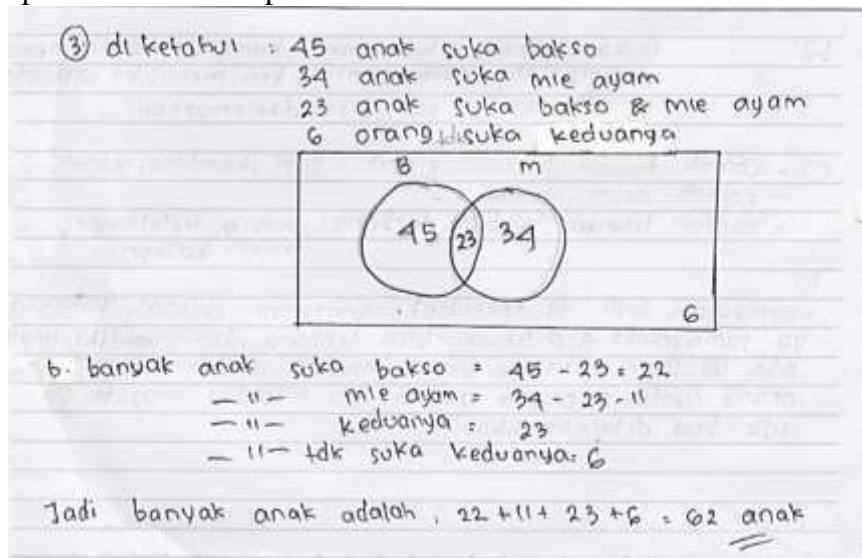 ③ di ketahui : 45 anak suka bakso
34 anak suka mie ayam
23 anak suka bakso & mie ayam
6 orang suka keduanya
B M
45 23 34
6
b. banyak anak suka bakso = 45 - 23 = 22
— " — mie ayam = 34 - 23 = 11
— " — keduanya = 23
— " — tdk suka keduanya = 6
Jadi banyak anak adalah , 22 + 11 + 23 + 6 = 62 anak